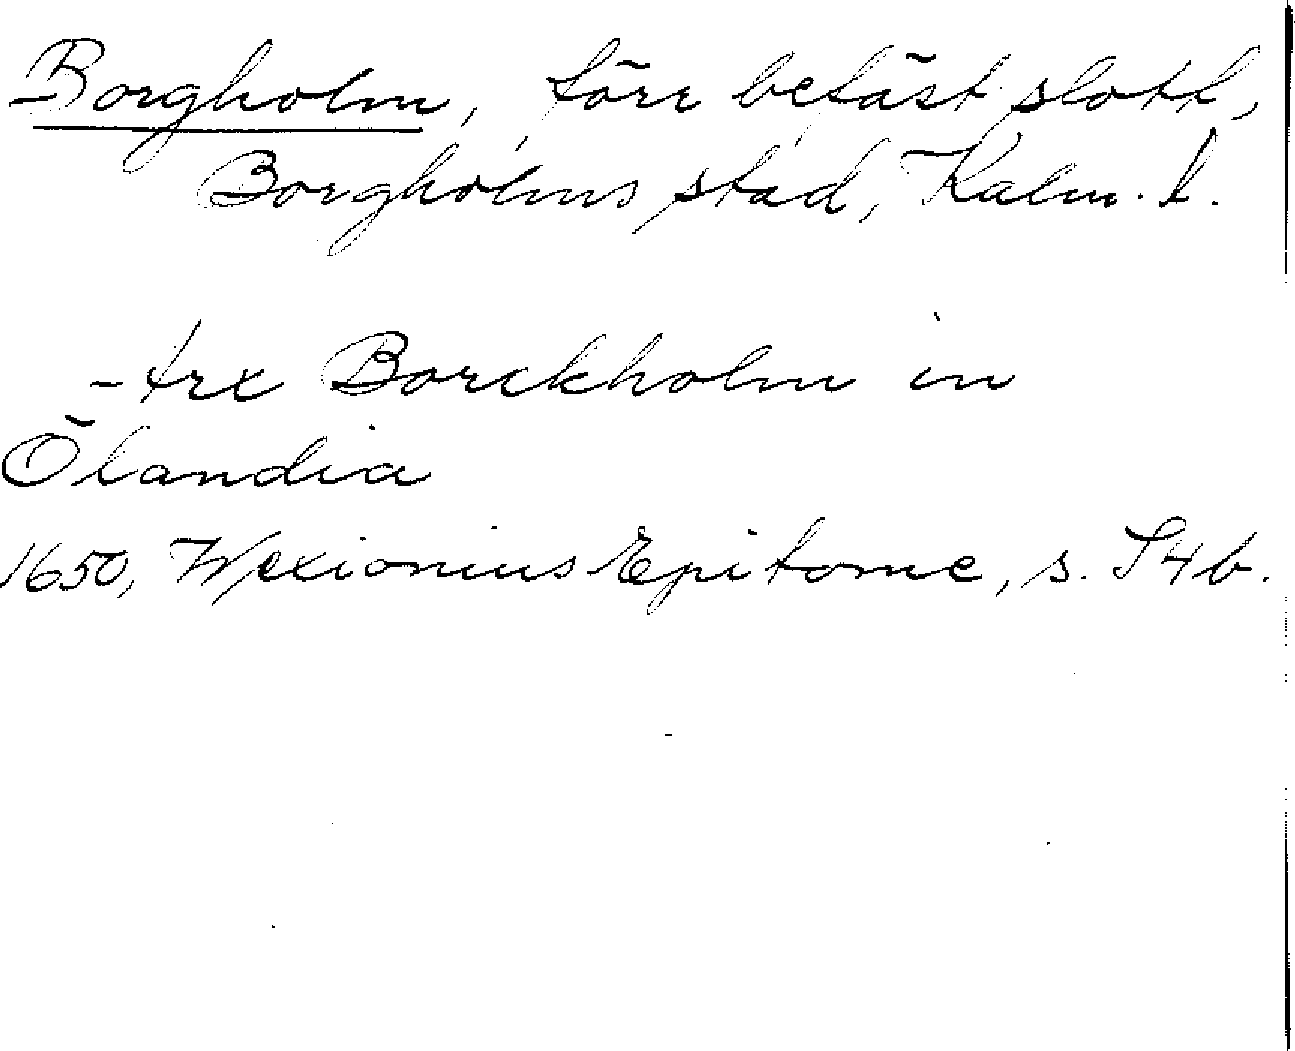 Borgholm, förr befäst slott,
Borgholms stad, Kalm. l.
- Arx Borckholm in
Ölandia
1650, Wexionius Epitome, s. S4b.